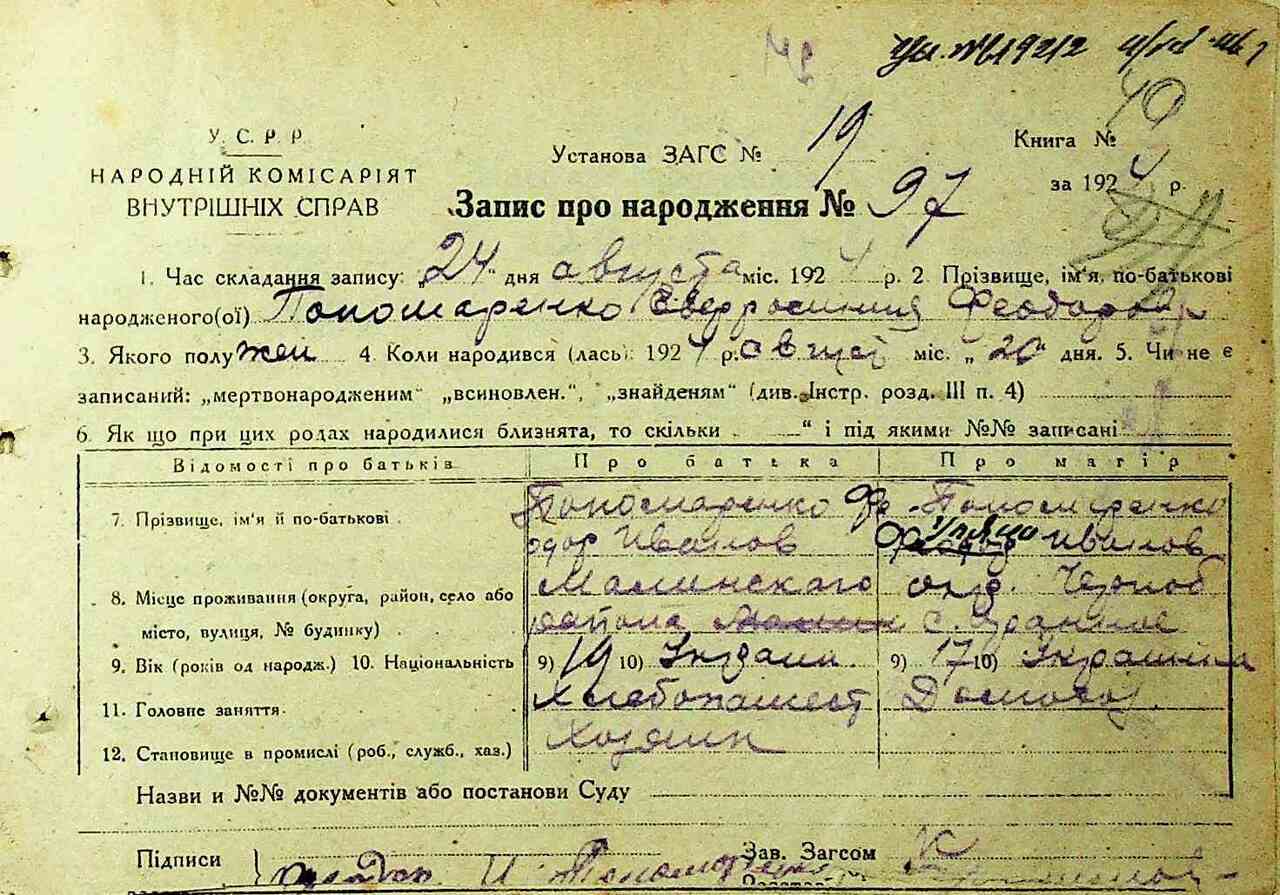 У. С. Р. Р.
НАРОДНІЙ КОМІСАРІЯТ
ВНУТРІШНІХ СПРАВ
Установа ЗАГС № 19
Книга №
40
за 1924 р.
Запис про народження № 97
1. Час складання запису: „24“ дня августа міс. 1924 р. 2 Прізвище, ім'я, по-батькові
народженого(ої) Пономаренко Феодоров
3. Якого полу жен 4. Коли народився (лась): 1924 р. август міс. „20“ дня. 5. Чи не є
записаний: „мертвонародженим“ „всиновлен.“, „знайденям“ (див. Інстр. розд. III п. 4)
6. Як що при цих родах народилися близнята, то скільки „ “ і під якими №№ записані
Відомості про батьків Про батька Про матір
7. Прізвище, ім'я й по-батькові Пономаренко Фе- Пономаренко
одор Иванов Иванов
8. Місце проживання (округа, район, село або Малинскаго
місто, вулиця, № будинку) района с.
9. Вік (років од народж.) 10. Національність 9) 19 10) 9) 17 10)
11. Головне заняття Хлебопашест
12. Становище в промислі (роб., служб., хаз.) Хозяин
Назви и №№ документів або постанови Суду
Підписи Зав. Загсом
И Пономаренко